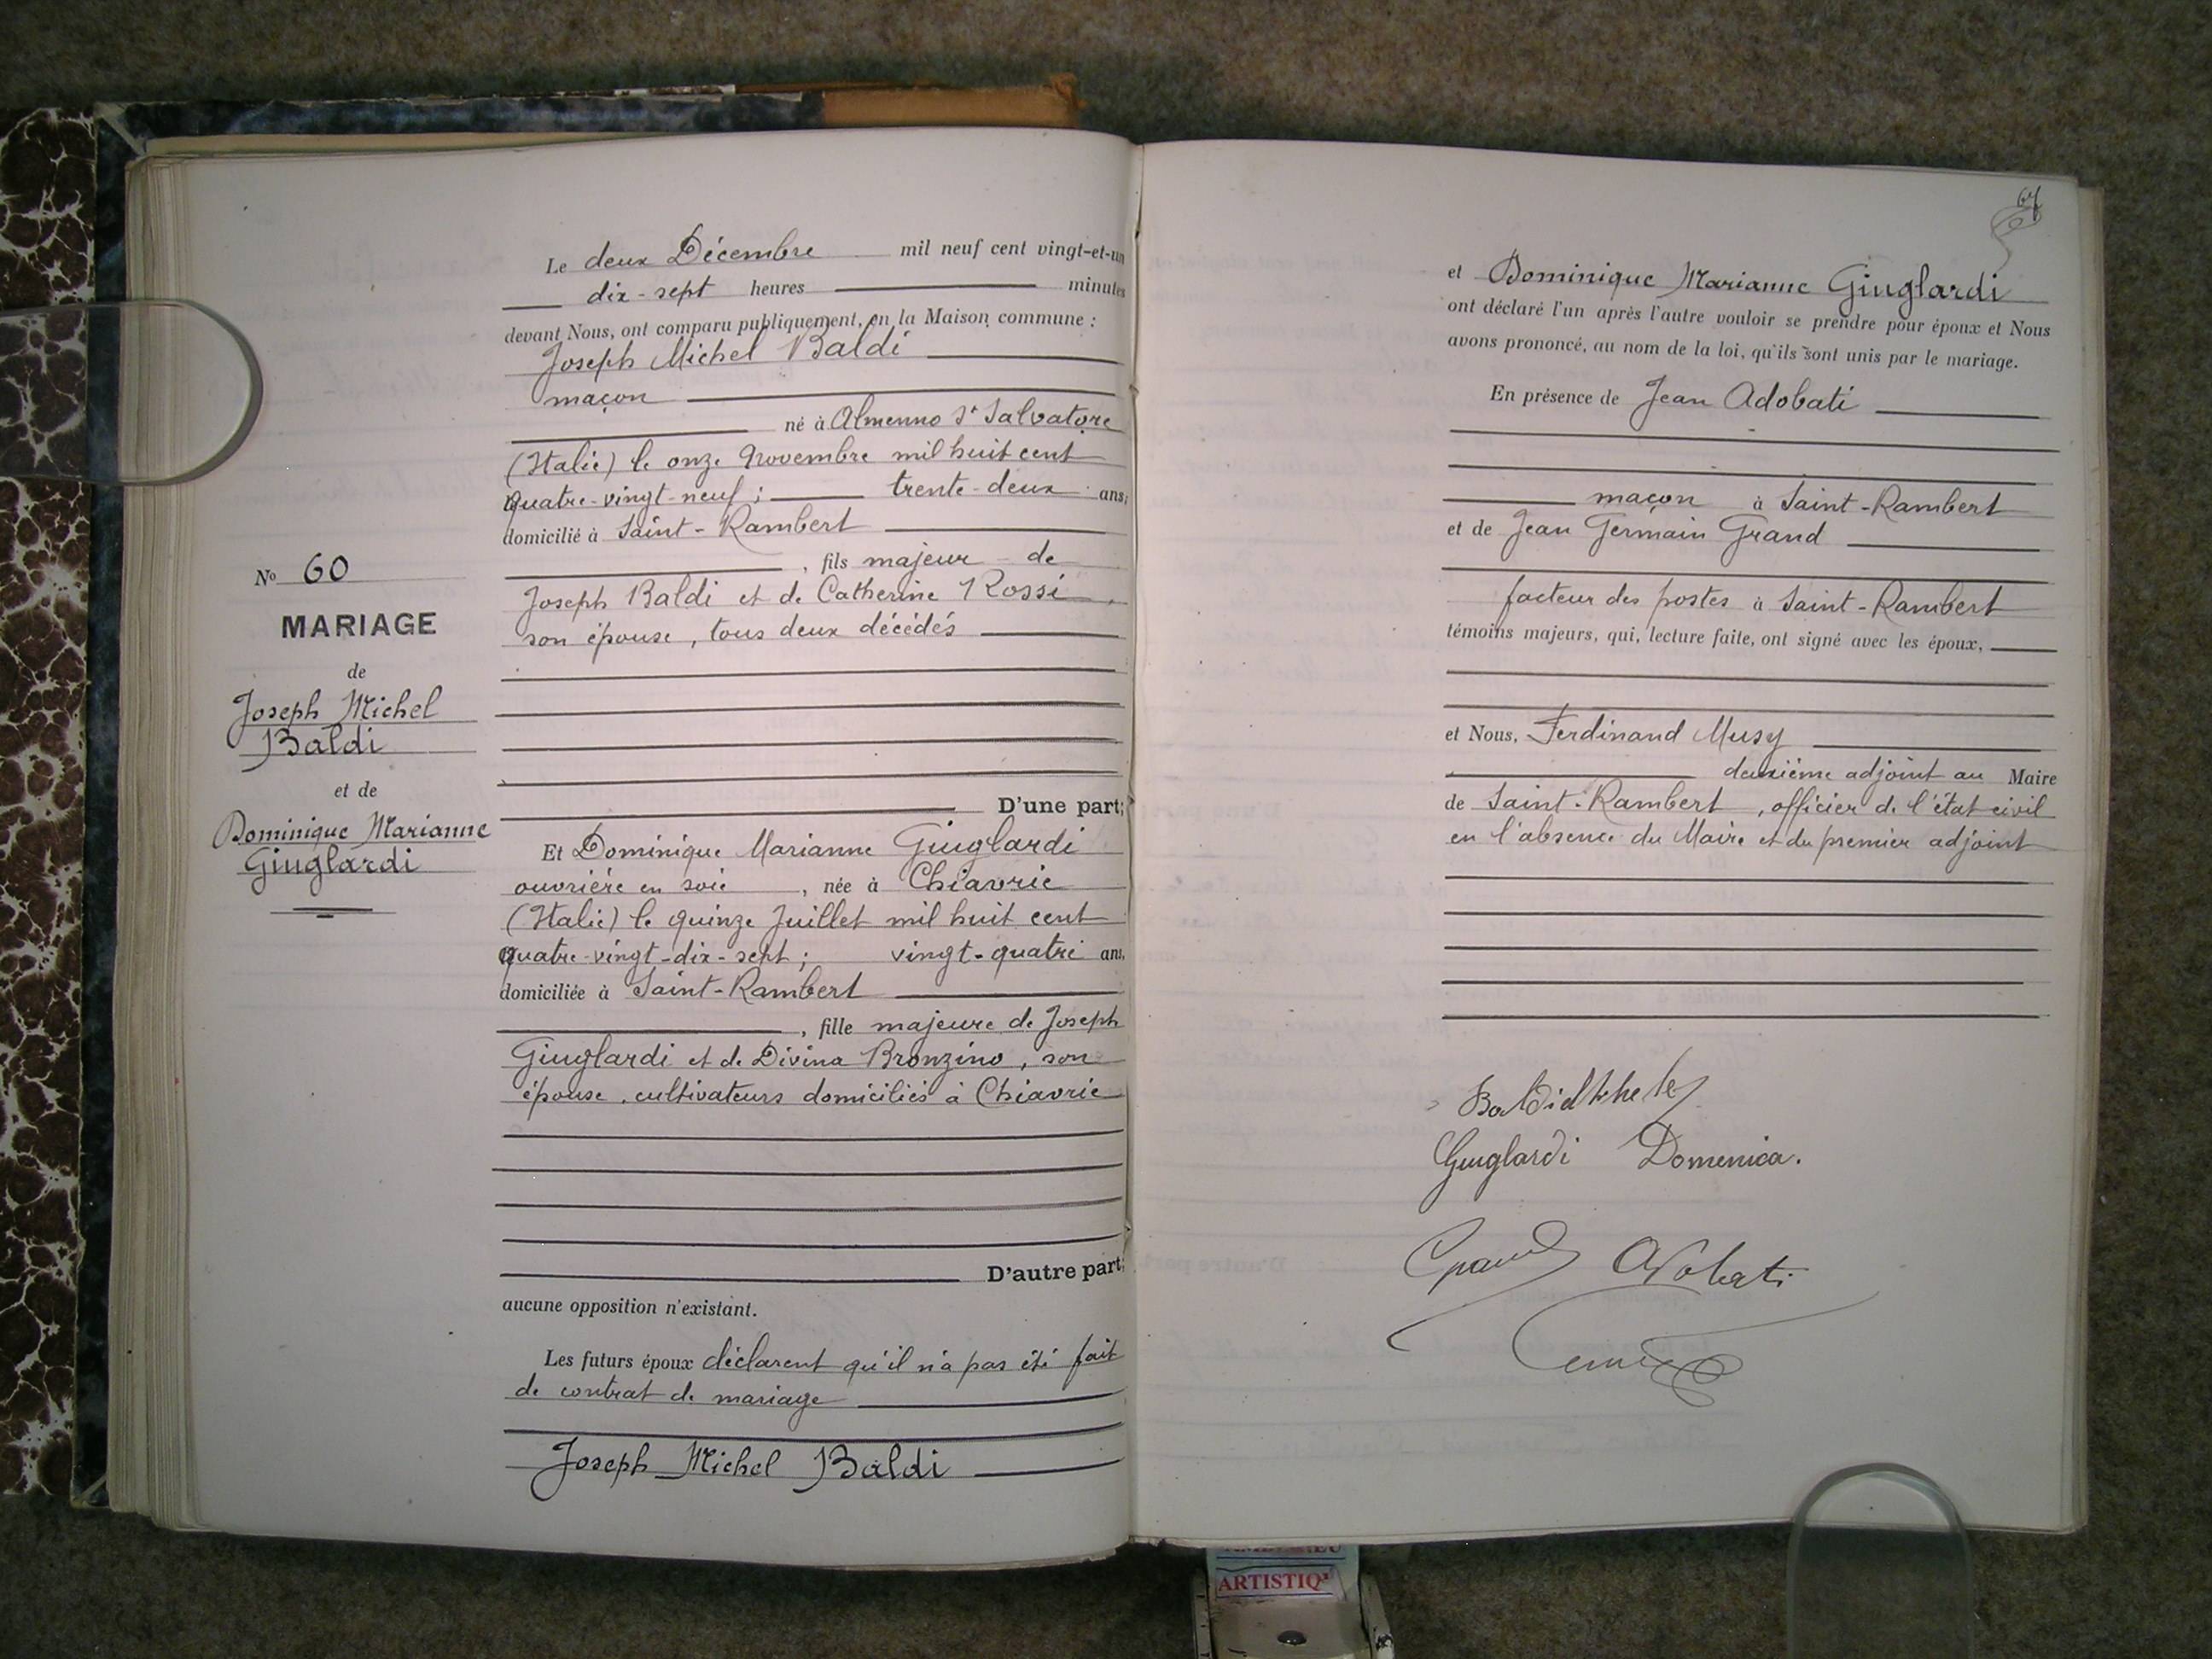 N° 60
MARIAGE
de
Joseph Michel
Baldi
et de
Dominique Marianne
Giuglardi
Le deux Décembre mil neuf cent vingt-et-un
dix-sept heures minutes
devant Nous, ont comparu publiquement, en la Maison commune :
Joseph Michel Baldi
maçon
né à Almenno St Salvatore
(Italie) le onze Novembre mil huit cent
quatre-vingt-neuf ; trente-deux ans,
domicilié à Saint-Rambert
, fils majeur de
Joseph Baldi et de Catherine Rossi
son épouse, tous deux décédés
D'une part;
Et Dominique Marianne Giuglardi
ouvrière en soie , née à Chiavrie
(Italie) le quinze Juillet mil huit cent
quatre-vingt-dix-sept ; vingt-quatre ans,
domiciliée à Saint-Rambert
, fille majeure de Joseph
Giuglardi et de Divina Bronzino, son
épouse, cultivateurs domiciliés à Chiavrie
D'autre part;
aucune opposition n'existant.
Les futurs époux déclarent qu'il n'a pas été fait
de contrat de mariage
Joseph Michel Baldi
67
et Dominique Marianne Giuglardi
ont déclaré l'un après l'autre vouloir se prendre pour époux et Nous
avons prononcé, au nom de la loi, qu'ils sont unis par le mariage.
En présence de Jean Adobati
maçon à Saint-Rambert
et de Jean Germain Grand
facteur des postes à Saint-Rambert
témoins majeurs, qui, lecture faite, ont signé avec les époux,
et Nous, Ferdinand Musy
deuxième adjoint au Maire
de Saint-Rambert, officier de l'état civil
en l'absence du Maire et du premier adjoint
Baldi
Giuglardi Domenica.
Grand Adobati
ARTISTIQ